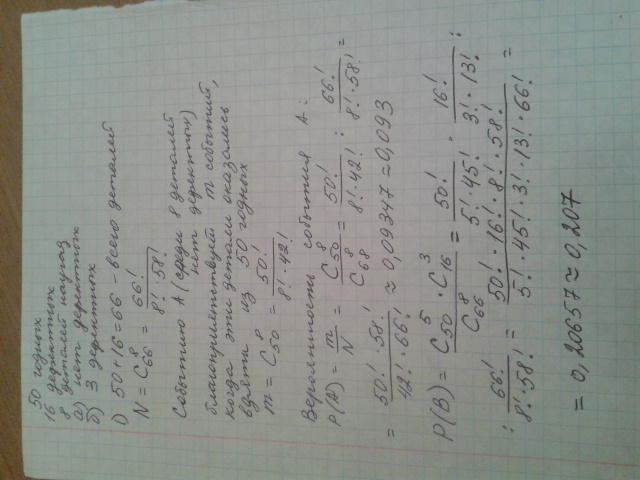 50 годных
16 дефектных
8 деталей наугад
а) нет дефектных
б) 3 дефектных
1) 50+16=66 - всего деталей
N = C_66^8 = 66! / (8!·58!)
Событию А (среди 8 деталей
нет дефектных)
благоприятствует m событий,
когда эти детали оказались
взяты из 50 годных
m = C_50^8 = 50! / (8!·42!)
Вероятность события А:
P(A) = m/N = C_50^8 / C_66^8 = 50! / (8!·42!) : 66! / (8!·58!) =
= 50!·58! / (42!·66!) ≈ 0,09347 ≈ 0,093
P(B) = C_50^5 · C_16^3 / C_66^8 = 50! / (5!·45!) · 16! / (3!·13!) :
: 66! / (8!·58!) = 50!·16!·8!·58! / (5!·45!·3!·13!·66!) =
= 0,20657 ≈ 0,207